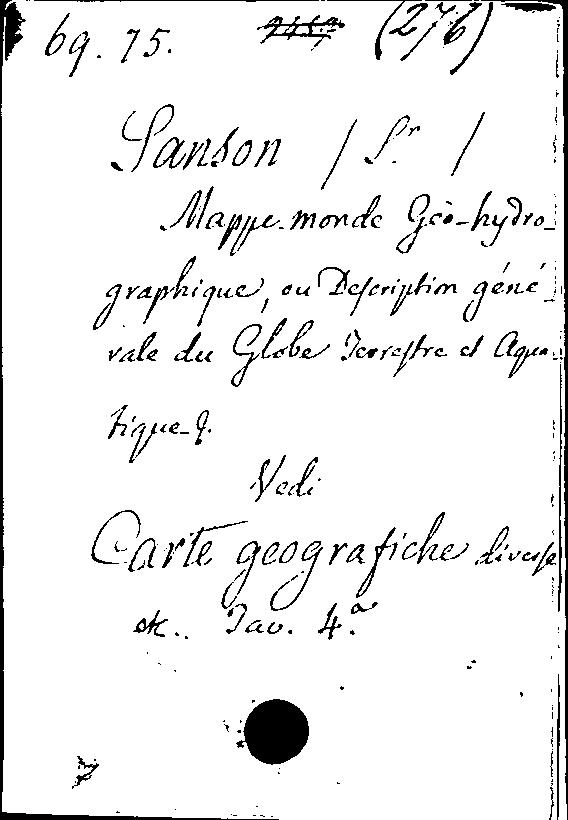 69. 75. (276)
Sanson / Sr. /
Mappe-monde Géo-hydro-
graphique, ou Description géné-
rale du Globe Terrestre et Aqua-
tique &.
Vedi
Carte geografiche diverse
etc.. Tav. 4.a